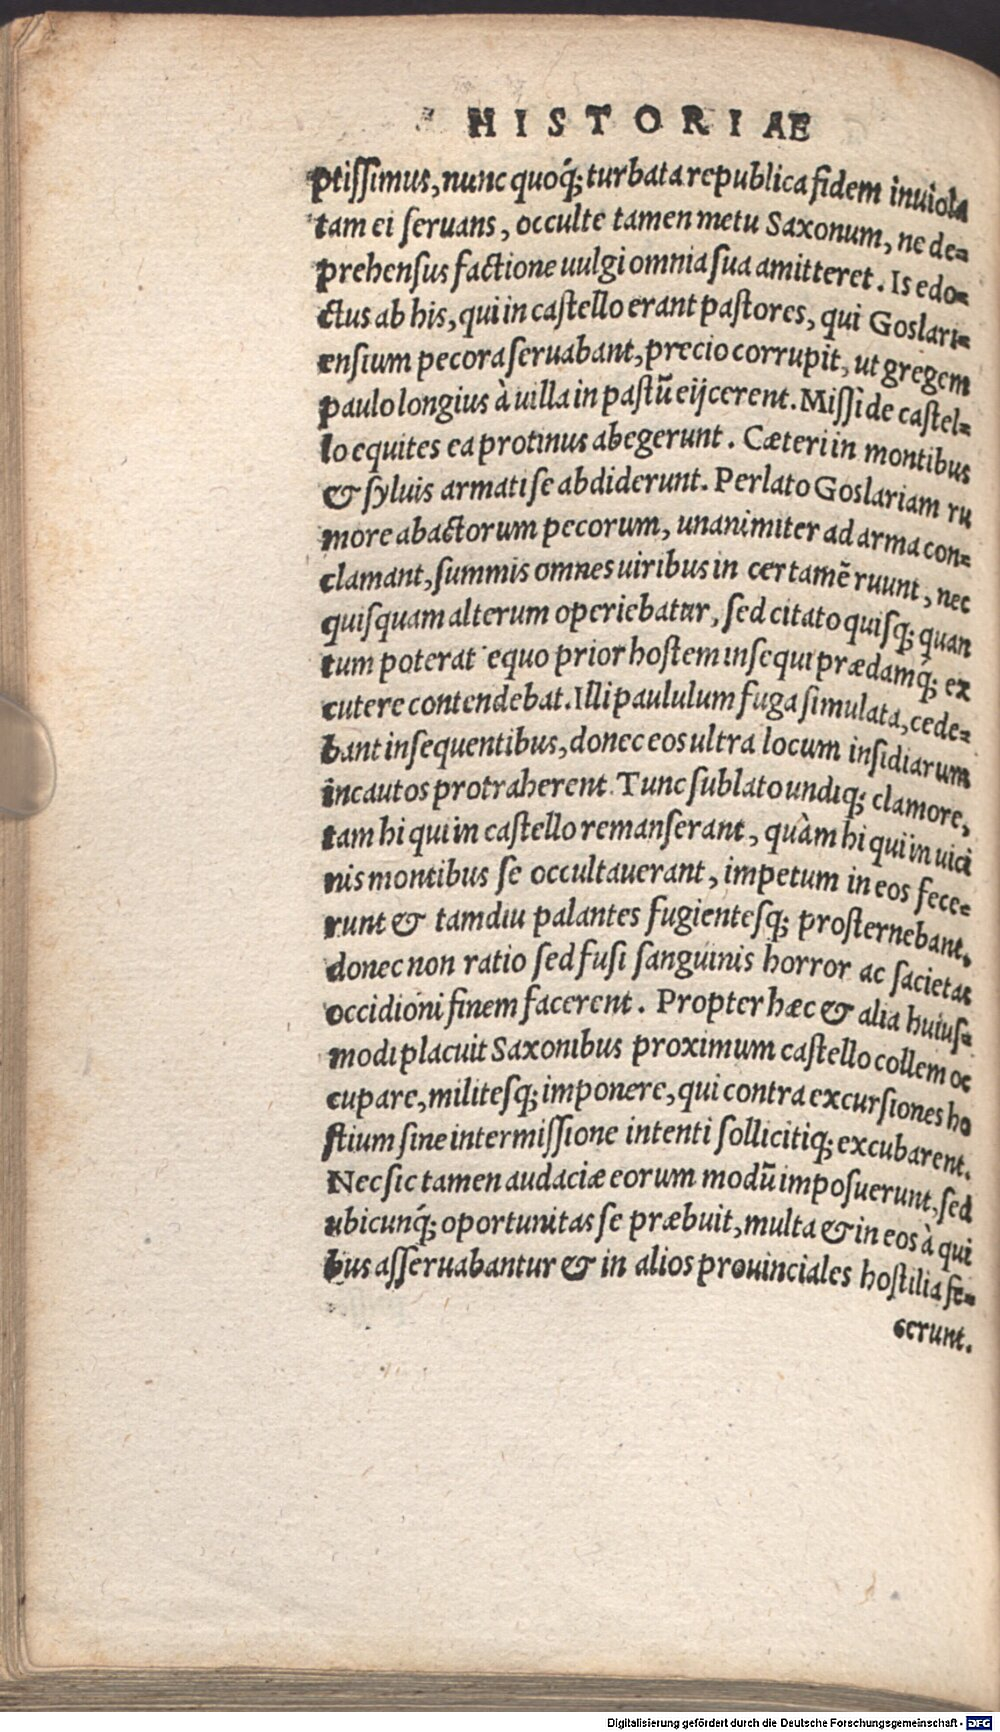 HISTORIAE
ptissimus, nunc quoq́; turbata republica fidem inuiola
tam ei seruans, occulte tamen metu Saxonum, ne de-
prehensus factione uulgi omnia sua amitteret. Is edo-
ctus ab his, qui in castello erant pastores, qui Goslari-
ensium pecora seruabant, precio corrupit, ut gregem
paulo longius à uilla in pastũ eijcerent. Missi de castel-
lo equites ea protinus abegerunt. Cæteri in montibus
& syluis armati se abdiderunt. Perlato Goslariam ru
more abactorum pecorum, unanimiter ad arma con-
clamant, summis omnes uiribus in certamẽ ruunt, nec
quisquam alterum operiebatur, sed citato quisq; quan
tum poterat equo prior hostem insequi prædamq́; ex
cutere contendebat. Illi paululum fuga simulata, cede-
bant insequentibus, donec eos ultra locum insidiarum
incautos protraherent. Tunc sublato undiq; clamore,
tam hi qui in castello remanserant, quàm hi qui in uici
nis montibus se occultauerant, impetum in eos fece-
runt & tamdiu palantes fugientesq; prosternebant,
donec non ratio sed fusi sanguinis horror ac sacietas
occidioni finem facerent. Propter hæc & alia huius-
modi placuit Saxonibus proximum castello collem oc
cupare, militesq; imponere, qui contra excursiones ho
stium sine intermissione intenti sollicitiq; excubarent.
Nec sic tamen audaciæ eorum modũ imposuerunt, sed
ubicunq́; oportunitas se præbuit, multa & in eos à qui
bus asseruabantur & in alios prouinciales hostilia fe-
cerunt.
Digitalisierung gefördert durch die Deutsche Forschungsgemeinschaft - DFG